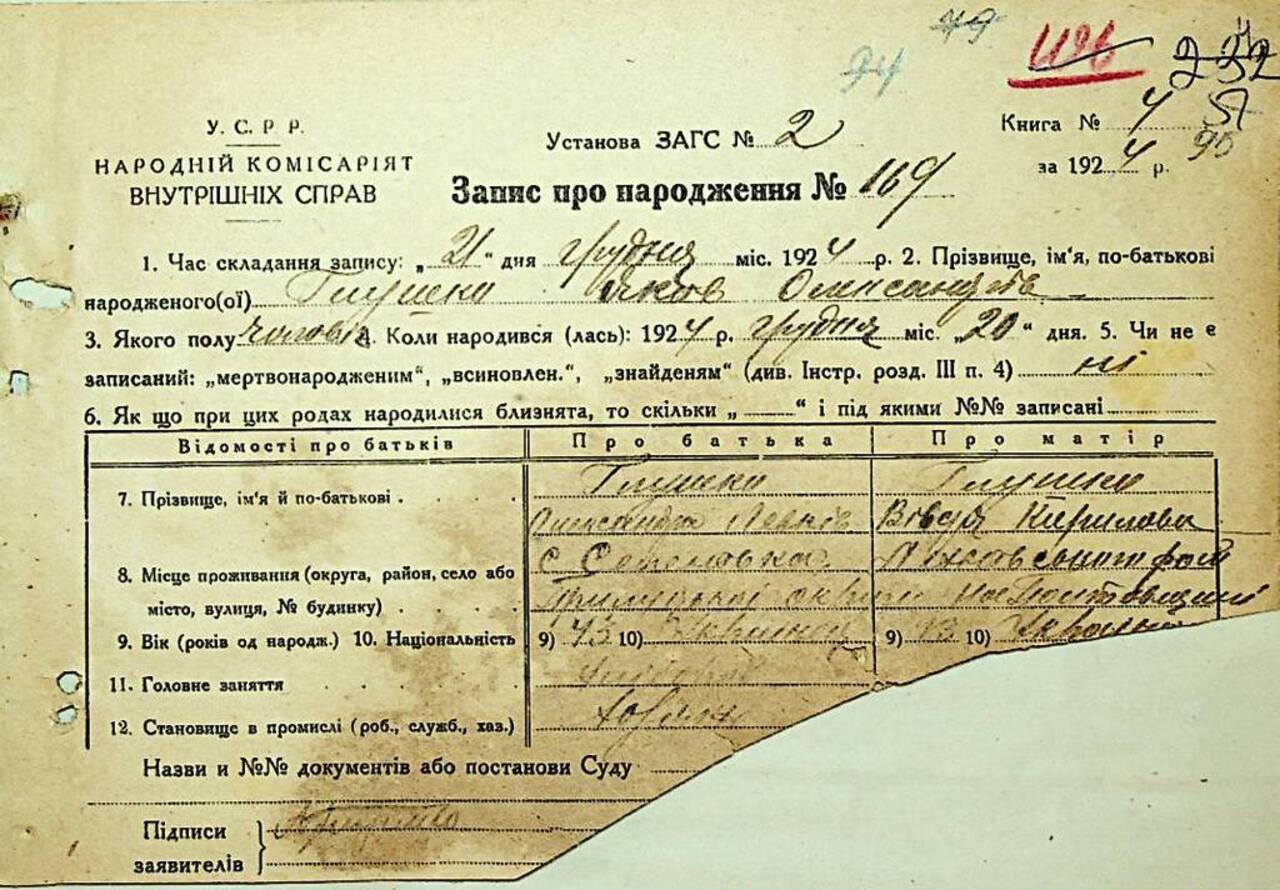 79
94
У. С. Р Р.
НАРОДНІЙ КОМІСАРІЯТ
ВНУТРІШНІХ СПРАВ
Установа ЗАГС № 2
Книга № 4
за 1924 р.
90
Запис про народження № 169
1. Час складання запису: „21“ дня грудня міс. 1924 р. 2. Прізвище, ім'я, по-батькові
народженого(ої) Глушко Яков Олександрів
3. Якого полу чоловіч. 4. Коли народився (лась): 1924 р. грудня міс. „20“ дня. 5. Чи не є
записаний: „мертвонародженим“, „всиновлен.“, „знайденям“ (див. Інстр. розд. III п. 4) ні
6. Як що при цих родах народилися близнята, то скільки „ “ і під якими №№ записані
Відомості про батьків Про батька Про матір
7. Прізвище, ім'я й по-батькові Глушко Глушко
Олександр Левків Вівдя Кирилова
8. Місце проживання (округа, район, село або
місто, вулиця, № будинку) Прилуцької округи на Полтавщині
9. Вік (років од народж.) 10. Національність 9) 43 10) Українец 9) 10)
11. Головне заняття
12. Становище в промислі (роб., служб., хаз.)
Назви и №№ документів або постанови Суду
Підписи
заявителів